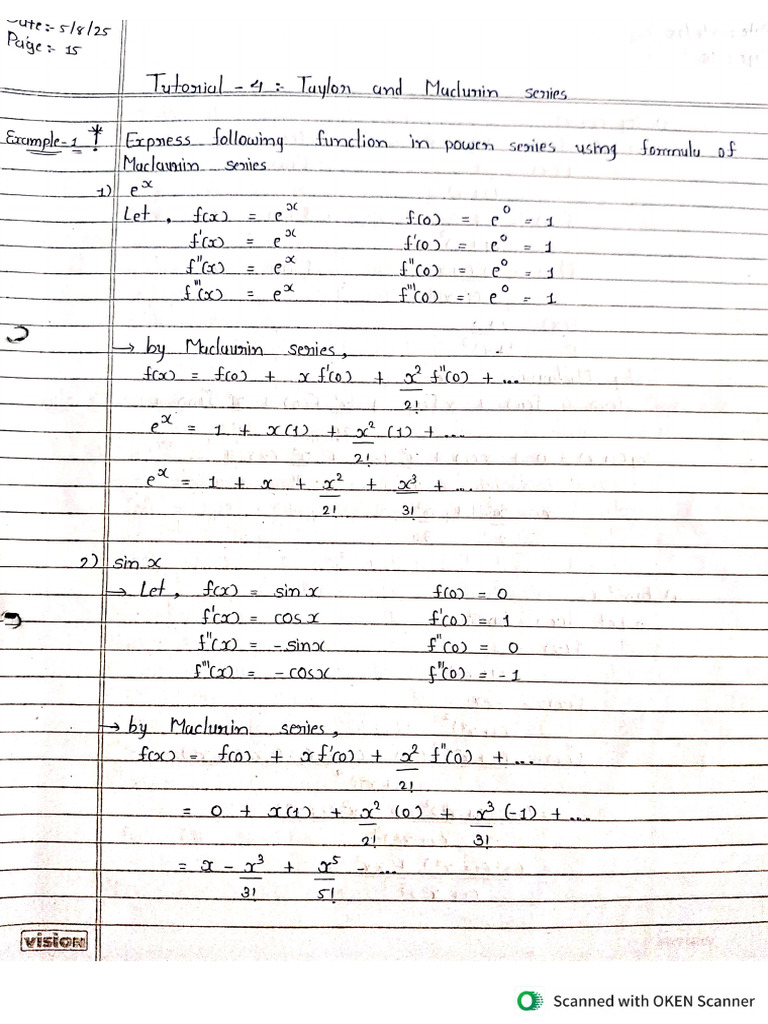 Date:- 5/8/25
Page:- 15
Tutorial - 4 :- Taylor and Maclurin series
Example-1 * Express following function in power series using formula of
Maclaurin series
1) e^x
Let, f(x) = e^x f(0) = e^0 = 1
f'(x) = e^x f'(0) = e^0 = 1
f''(x) = e^x f''(0) = e^0 = 1
f'''(x) = e^x f'''(0) = e^0 = 1
→ by Maclaurin series,
f(x) = f(0) + x f'(0) + x²/2! f''(0) + ...
e^x = 1 + x(1) + x²/2! (1) + ...
e^x = 1 + x + x²/2! + x³/3! + ...
2) sin x
→ Let, f(x) = sin x f(0) = 0
f'(x) = cos x f'(0) = 1
f''(x) = - sin x f''(0) = 0
f'''(x) = - cos x f'''(0) = - 1
→ by Maclurin series,
f(x) = f(0) + x f'(0) + x²/2! f''(0) + ...
= 0 + x(1) + x²/2! (0) + x³/3! (-1) + ...
= x - x³/3! + x⁵/5! - ...
vision
Scanned with OKEN Scanner